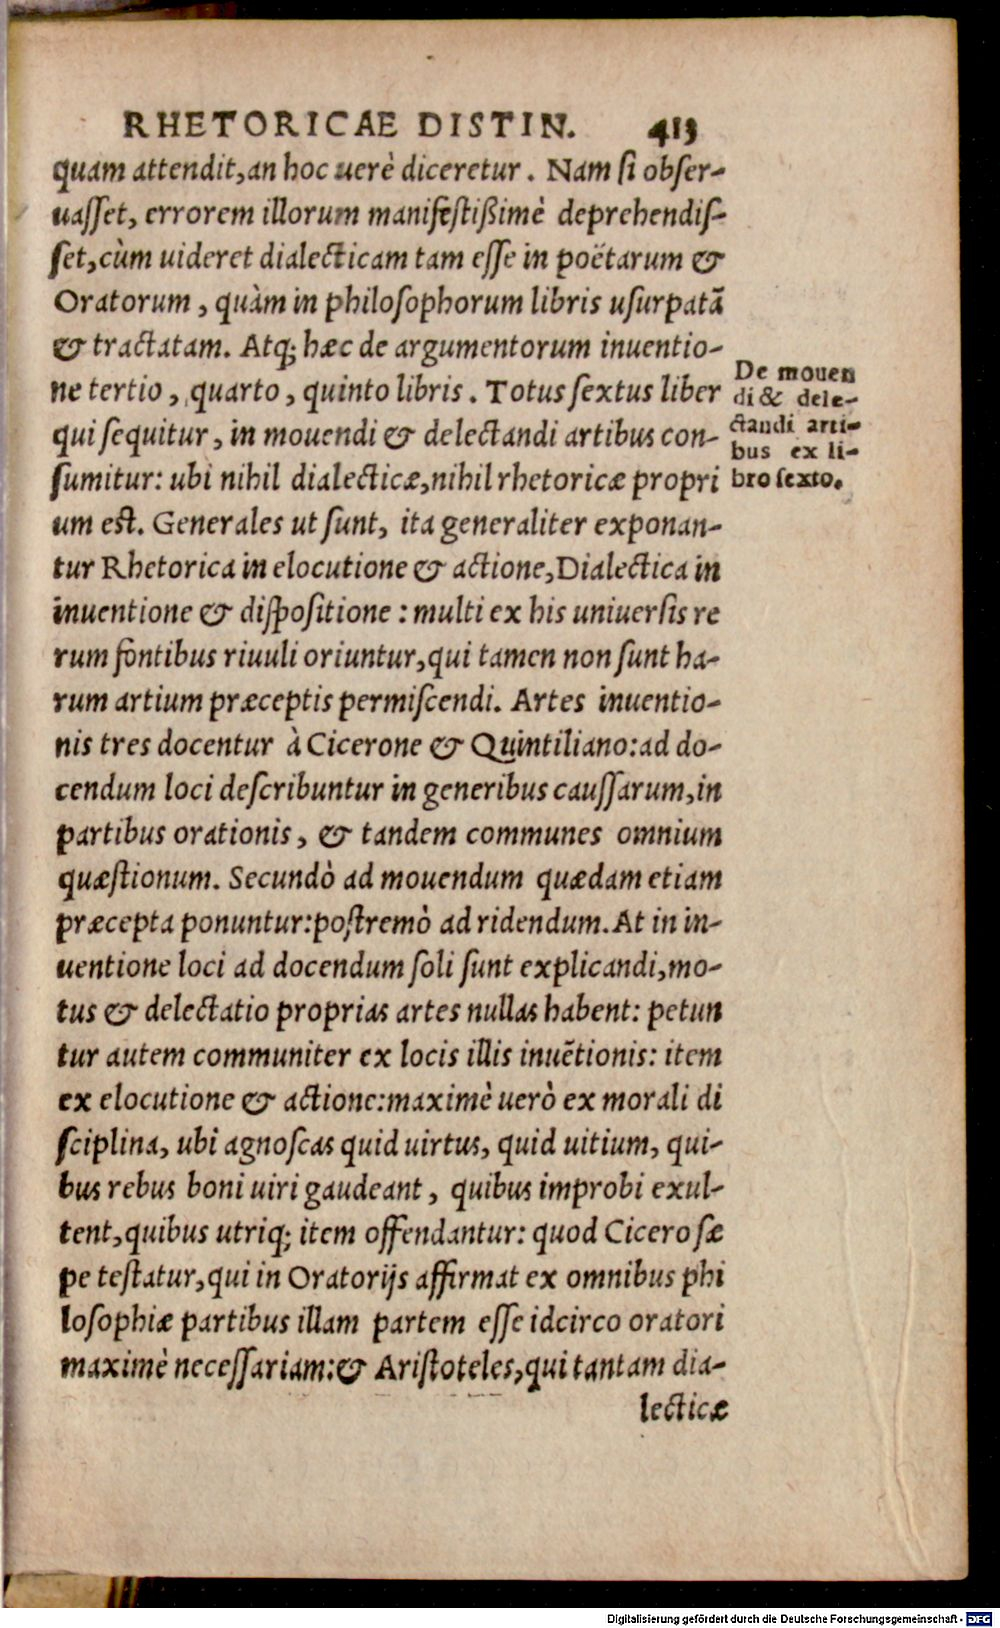 RHETORICAE DISTIN. 413
quam attendit, an hoc uerè diceretur. Nam si obser-
uasset, errorem illorum manifestißimè deprehendis-
set, cùm uideret dialecticam tam esse in poëtarum &
Oratorum, quàm in philosophorum libris usurpatã
& tractatam. Atq; hæc de argumentorum inuentio-
ne tertio, quarto, quinto libris. Totus sextus liber
qui sequitur, in mouendi & delectandi artibus con-
sumitur: ubi nihil dialecticæ, nihil rhetoricæ propri
um est. Generales ut sunt, ita generaliter exponan-
tur Rhetorica in elocutione & actione, Dialectica in
inuentione & dispositione: multi ex his uniuersis re
rum fontibus riuuli oriuntur, qui tamen non sunt ha-
rum artium præceptis permiscendi. Artes inuentio-
nis tres docentur à Cicerone & Quintiliano: ad do-
cendum loci describuntur in generibus caussarum, in
partibus orationis, & tandem communes omnium
quæstionum. Secundò ad mouendum quædam etiam
præcepta ponuntur: postremò ad ridendum. At in in-
uentione loci ad docendum soli sunt explicandi, mo-
tus & delectatio proprias artes nullas habent: petun
tur autem communiter ex locis illis inuẽtionis: item
ex elocutione & actione: maximè uerò ex morali di
sciplina, ubi agnoscas quid uirtus, quid uitium, qui-
bus rebus boni uiri gaudeant, quibus improbi exul-
tent, quibus utriq; item offendantur: quod Cicero sæ
pe testatur, qui in Oratorijs affirmat ex omnibus phi
losophiæ partibus illam partem esse idcirco oratori
maximè necessariam: & Aristoteles, qui tantam dia-
lecticæ
De mouen
di & dele-
ctandi arti-
bus ex li-
bro sexto.
Digitalisierung gefördert durch die Deutsche Forschungsgemeinschaft - DFG